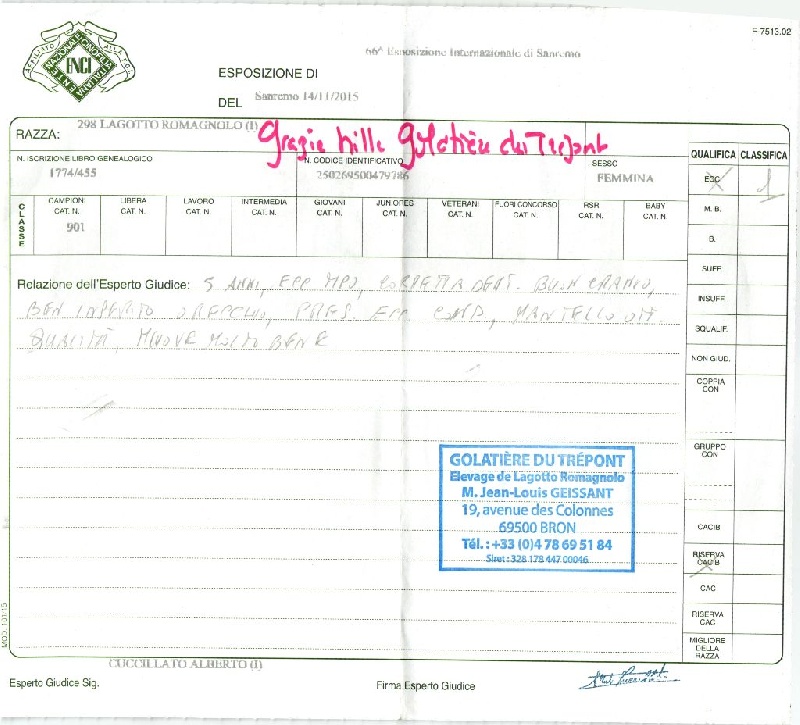 F 7513.02
66^ Esposizione Internazionale di Sanremo
ENCI
ESPOSIZIONE DI
DEL Sanremo 14/11/2015
RAZZA: 298 LAGOTTO ROMAGNOLO (I)
Grazie Mille Golatière du Trépont
N. ISCRIZIONE LIBRO GENEALOGICO
1774/455
N. CODICE IDENTIFICATIVO
250269500479786
SESSO
FEMMINA
QUALIFICA CLASSIFICA
CLASSE
CAMPIONI CAT. N.
901
LIBERA CAT. N.
LAVORO CAT. N.
INTERMEDIA CAT. N.
GIOVANI CAT. N.
JUNIORES CAT. N.
VETERANI CAT. N.
FUORI CONCORSO CAT. N.
RSR CAT. N.
BABY CAT. N.
ECC. 1
M. B.
B.
SUFF.
INSUFF.
SQUALIF.
NON GIUD.
COPPIA CON
GRUPPO CON
CACIB
RISERVA CACIB
CAC
RISERVA CAC
MIGLIORE DELLA RAZZA
Relazione dell'Esperto Giudice: 5 ANNI, ECC TIPO, CORRETTA DENT. BUON CRANIO,
BEN INSERITO ORECCHIO, PRES. ECC COND, MANTELLO OTT.
QUALITÀ, MUOVE MOLTO BENE
GOLATIÈRE DU TRÉPONT
Elevage de Lagotto Romagnolo
M. Jean-Louis GEISSANT
19, avenue des Colonnes
69500 BRON
Tél. : +33 (0)4 78 69 51 84
Siret : 328 178 447 00046
CUCCILLATO ALBERTO (I)
Esperto Giudice Sig.
Firma Esperto Giudice